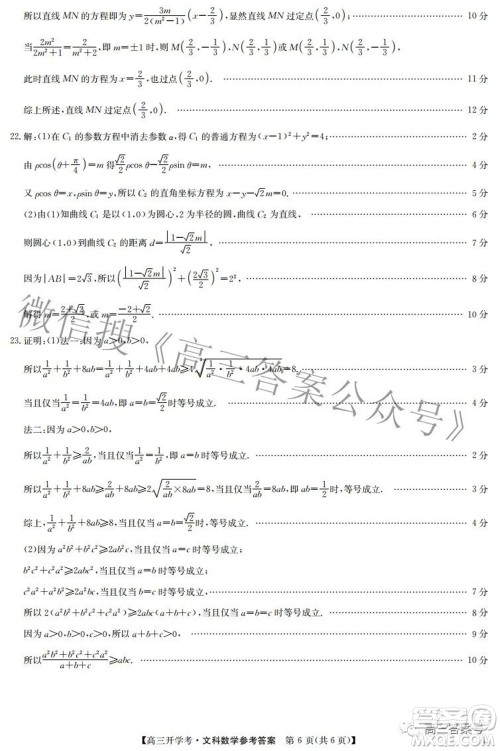 所以直线 MN 的方程即为 y=3m/(2(m²−1))(x−2/3),显然直线 MN 过定点(2/3,0); 10 分
当2m²/(2m²+1)=2/(m²+2)时,即 m=±1 时,则 M(2/3,−2/3),N(2/3,2/3)或 M(2/3,2/3),N(2/3,−2/3),
此时直线 MN 的方程为 x=2/3,也过点(2/3,0). 11 分
综上所述,直线 MN 过定点(2/3,0). 12 分
22.解:(1)在 C₁ 的参数方程中消去参数 α,得 C₁ 的普通方程为(x−1)²+y²=4; 2 分
由 ρcos(θ+π/4)=m 得√2/2 ρcos θ−√2/2 ρsin θ=m, 4 分
又 ρcos θ=x,ρsin θ=y,所以 C₂ 的直角坐标方程为 x−y−√2m=0. 5 分
(2)由(1)知曲线 C₁ 是以(1,0)为圆心,2 为半径的圆,曲线 C₂ 为直线,
则圆心(1,0)到曲线 C₂ 的距离 d=|1−√2m|/√2, 7 分
因为|AB|=2√3,所以(|1−√2m|/√2)²+(2√3/2)²=2², 8 分
解得 m= 或 m=. 10 分
23.证明:(1)法一:因为 a>0,b>0,
所以1/a²+1/b²+8ab=1/a²+1/b²+4ab+4ab≥4⁴√(1/a²·1/b²·4ab·4ab)=8, 3 分
当且仅当1/a²=1/b²=4ab 时,等号成立. 4 分
法二:因为 a>0,b>0,
所以1/a²+1/b²≥2/ab,当且仅当1/a²=1/b²,即 a=b 时等号成立.
所以1/a²+1/b²+8ab≥2/ab+8ab≥2√(2/ab×8ab)=8,当且仅当2/ab=8ab 时等号成立. 3 分
综上,1/a²+1/b²+8ab≥8,当且仅当 a=b= 时等号成立. 4 分
(2)因为 a²b²+b²c²≥2ab²c,当且仅当 a=c 时等号成立;
b²c²+c²a²≥2abc²,当且仅当 a=b 时等号成立;
c²a²+a²b²≥2a²bc,当且仅当 b=c 时等号成立. 7 分
所以 2(a²b²+b²c²+c²a²)≥2abc(a+b+c), 8 分
因为 a>0,b>0,c>0,所以 a+b+c>0, 9 分
所以(a²b²+b²c²+c²a²)/(a+b+c)≥abc. 10 分
微信搜《高三答案公众号》
【高三开学考·文科数学参考答案 第 6 页(共 6 页)】
高三答案号